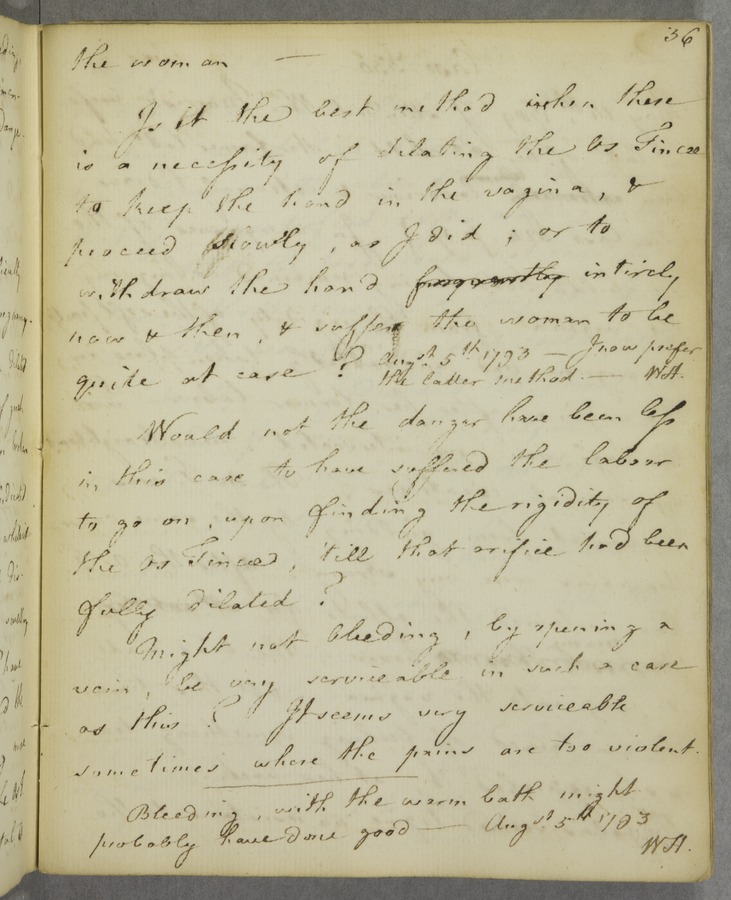 36
the woman —
Is it the best method when there
is a necessity of dilating the Os Tincæ
to keep the hand in the vagina, &
proceed slowly, as I did; or to
withdraw the hand frequently intirely
now & then, & suffer the woman to be
quite at ease? Augst 5th 1793 — I now prefer
the latter method. — WH.
Would not the danger have been less
in this case to have suffered the labour
to go on, upon finding the rigidity of
the Os Tincæ, 'till that orifice had been
fully dilated?
Might not bleeding, by opening a
vein, be very serviceable in such a case
as this? It seems very serviceable
sometimes where the pains are too violent.
Bleeding, with the warm bath might
probably have done good — Augst 5th 1793
WH.